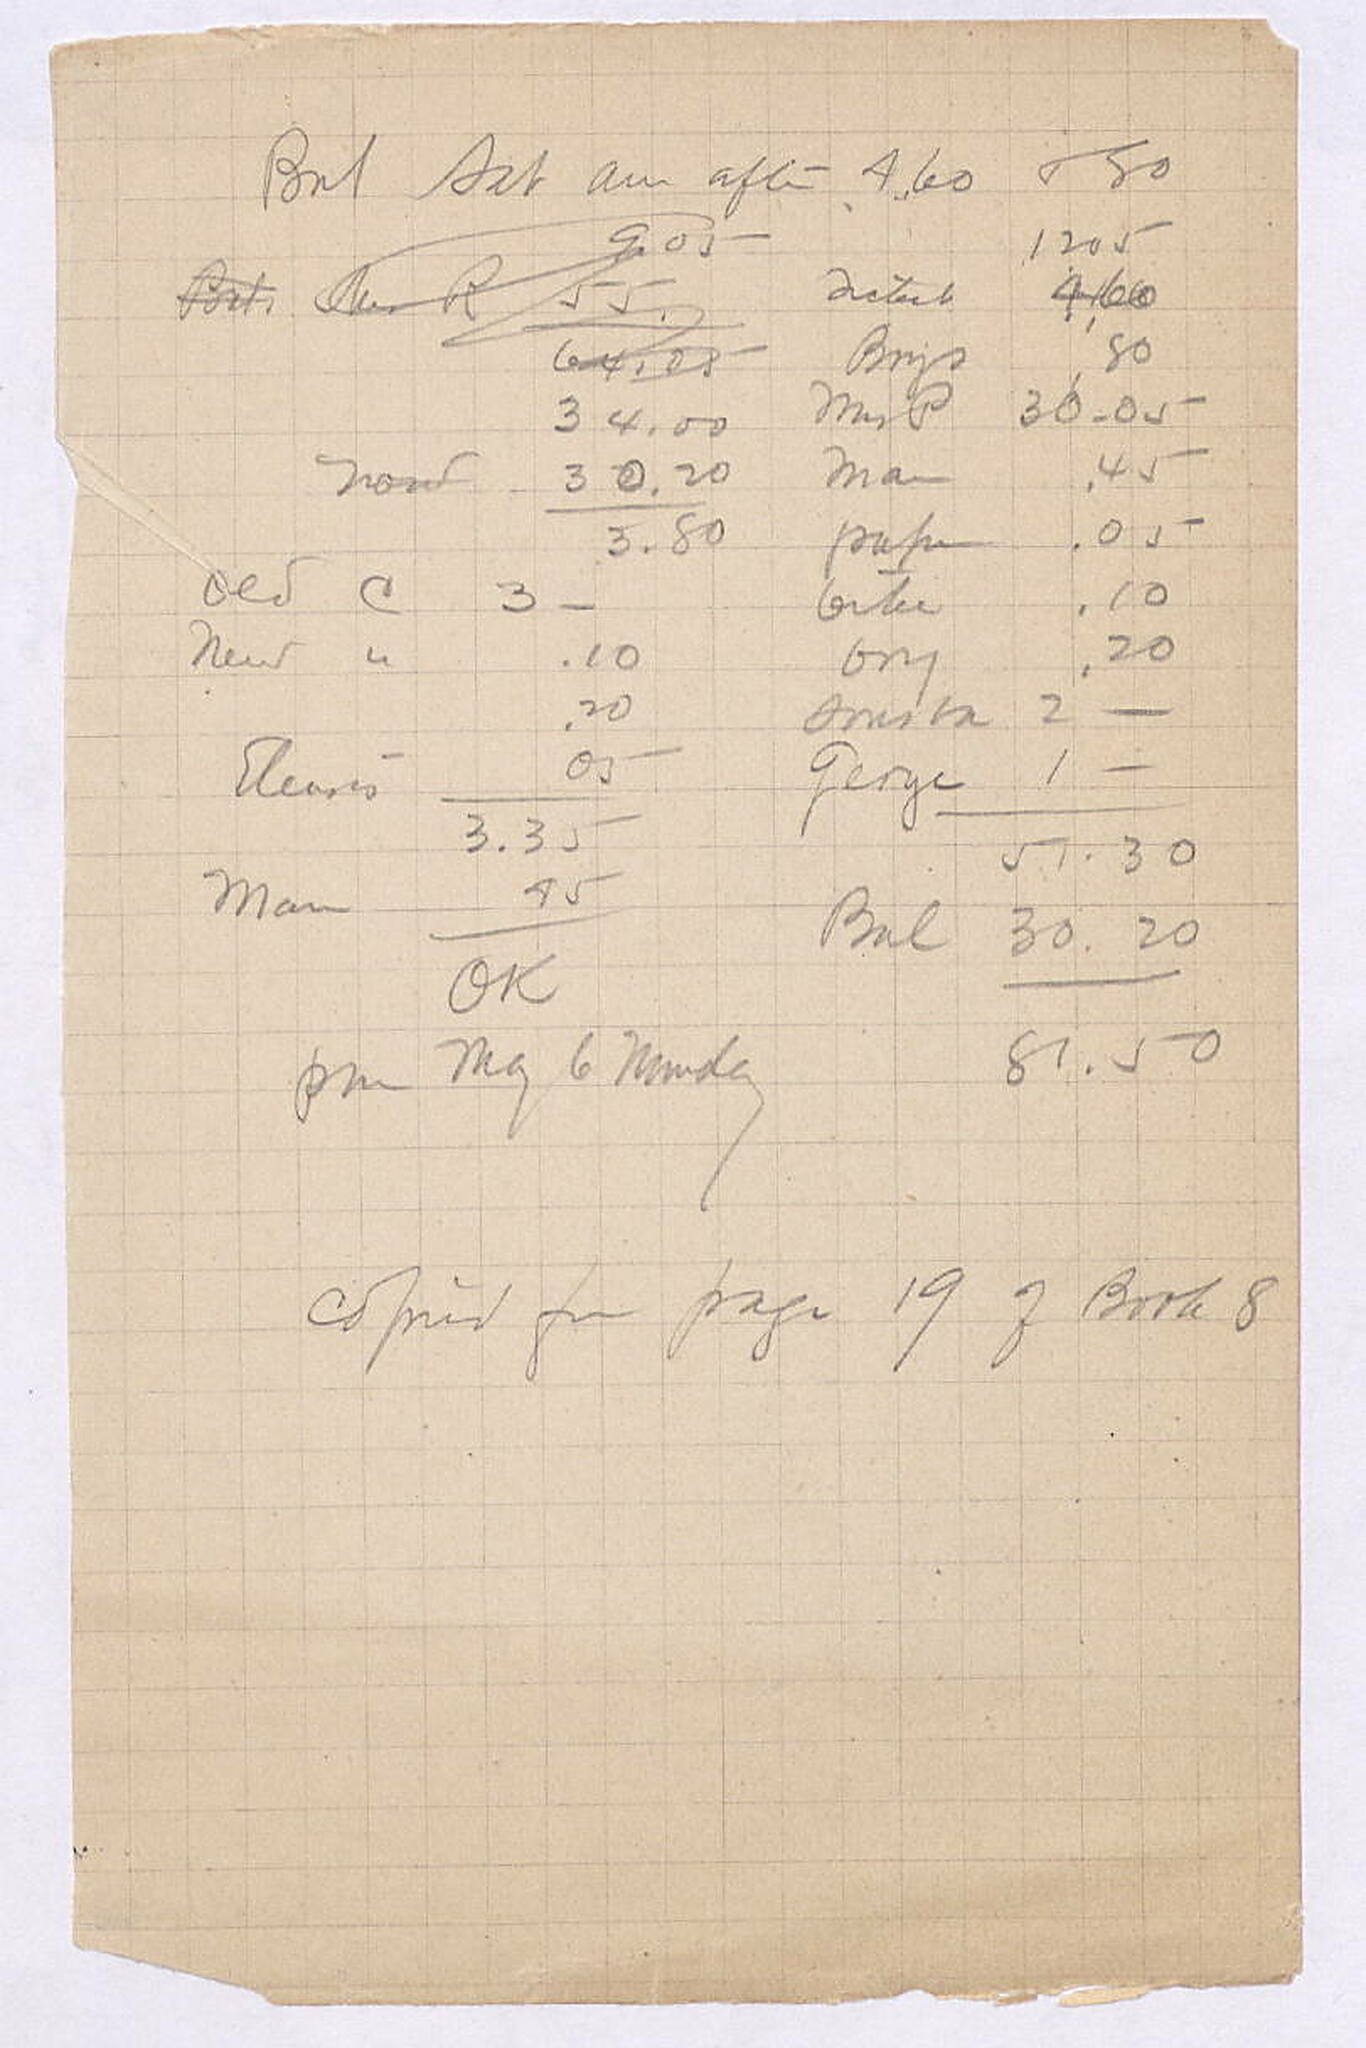 Bal Sat am after 4.60 + 80
9.05
Mrs R 55.
64.05
34.00
now 30.20
3.80
Old C 3 —
New " .10
.20
Eleusis 05
3.35
Mam 45
OK
pm May 6 Monday
1205
ticket 4.60
Boys .80
Mrs P 30.05
Mam .45
paper .05
.10
boy .20
2 —
George 1 —
51.30
Bal 30.20
81.50
copied from page 19 of Book 8